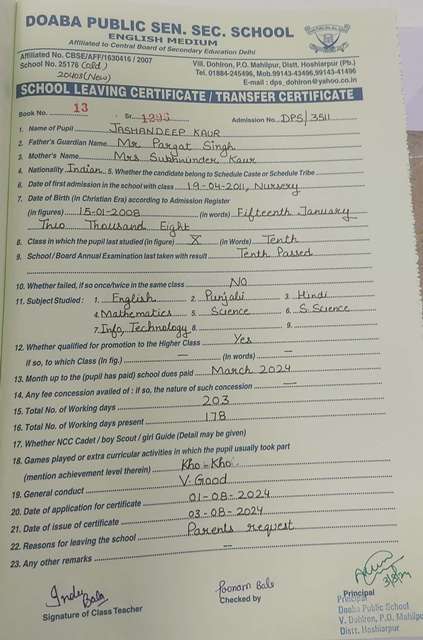 DOABA PUBLIC SEN. SEC. SCHOOL
ENGLISH MEDIUM
Affiliated to Central Board of Secondary Education Delhi
Affiliated No. CBSE/AFF/1630416 / 2007
School No. 25176 (old)
20405 (New)
Vill. Dohlron, P.O. Mahilpur, Distt. Hoshiarpur (Pb.)
Tel. 01884-245496, Mob.99143-43496,99143-41496
E-mail : dps_dohlron@yahoo.co.in
SCHOOL LEAVING CERTIFICATE / TRANSFER CERTIFICATE
Book No. 13 Sr. 1293 Admission No. DPS/3511
1. Name of Pupil JASHANDEEP KAUR
2. Father's Guardian Name Mr. Pargat Singh
3. Mother's Name Mrs Subhwinder Kaur
4. Nationality Indian 5. Whether the candidate belong to Schedule Caste or Schedule Tribe
6. Date of first admission in the school with class 19-04-2011, Nursery
7. Date of Birth (in Christian Era) according to Admission Register
(in figures) 15-01-2008 (in words) Fifteenth January
Two Thousand Eight
8. Class in which the pupil last studied (in figure) X (in Words) Tenth
9. School / Board Annual Examination last taken with result Tenth Passed
10. Whether failed, if so once/twice in the same class NO
11. Subject Studied : 1. English 2. Punjabi 3. Hindi
4. Mathematics 5. Science 6. S. Science
7. Info, Technology 8. 9.
12. Whether qualified for promotion to the Higher Class Yes
if so, to which Class (in fig.) — (in words) —
13. Month up to the (pupil has paid) school dues paid March 2024
14. Any fee concession availed of : if so, the nature of such concession —
15. Total No. of Working days 203
16. Total No. of Working days present 178
17. Whether NCC Cadet / boy Scout / girl Guide (Detail may be given)
18. Games played or extra curricular activities in which the pupil usually took part
(mention achievement level therein) Kho-Kho
19. General conduct V. Good
20. Date of application for certificate 01-08-2024
21. Date of issue of certificate 03-08-2024
22. Reasons for leaving the school Parents request
23. Any other remarks —
Indu Bala
Signature of Class Teacher
Poonam Bala
Checked by
3/8/24
Principal
Principal
Doaba Public School
V. Dohlron, P.O. Mahilpur
Distt. Hoshiarpur